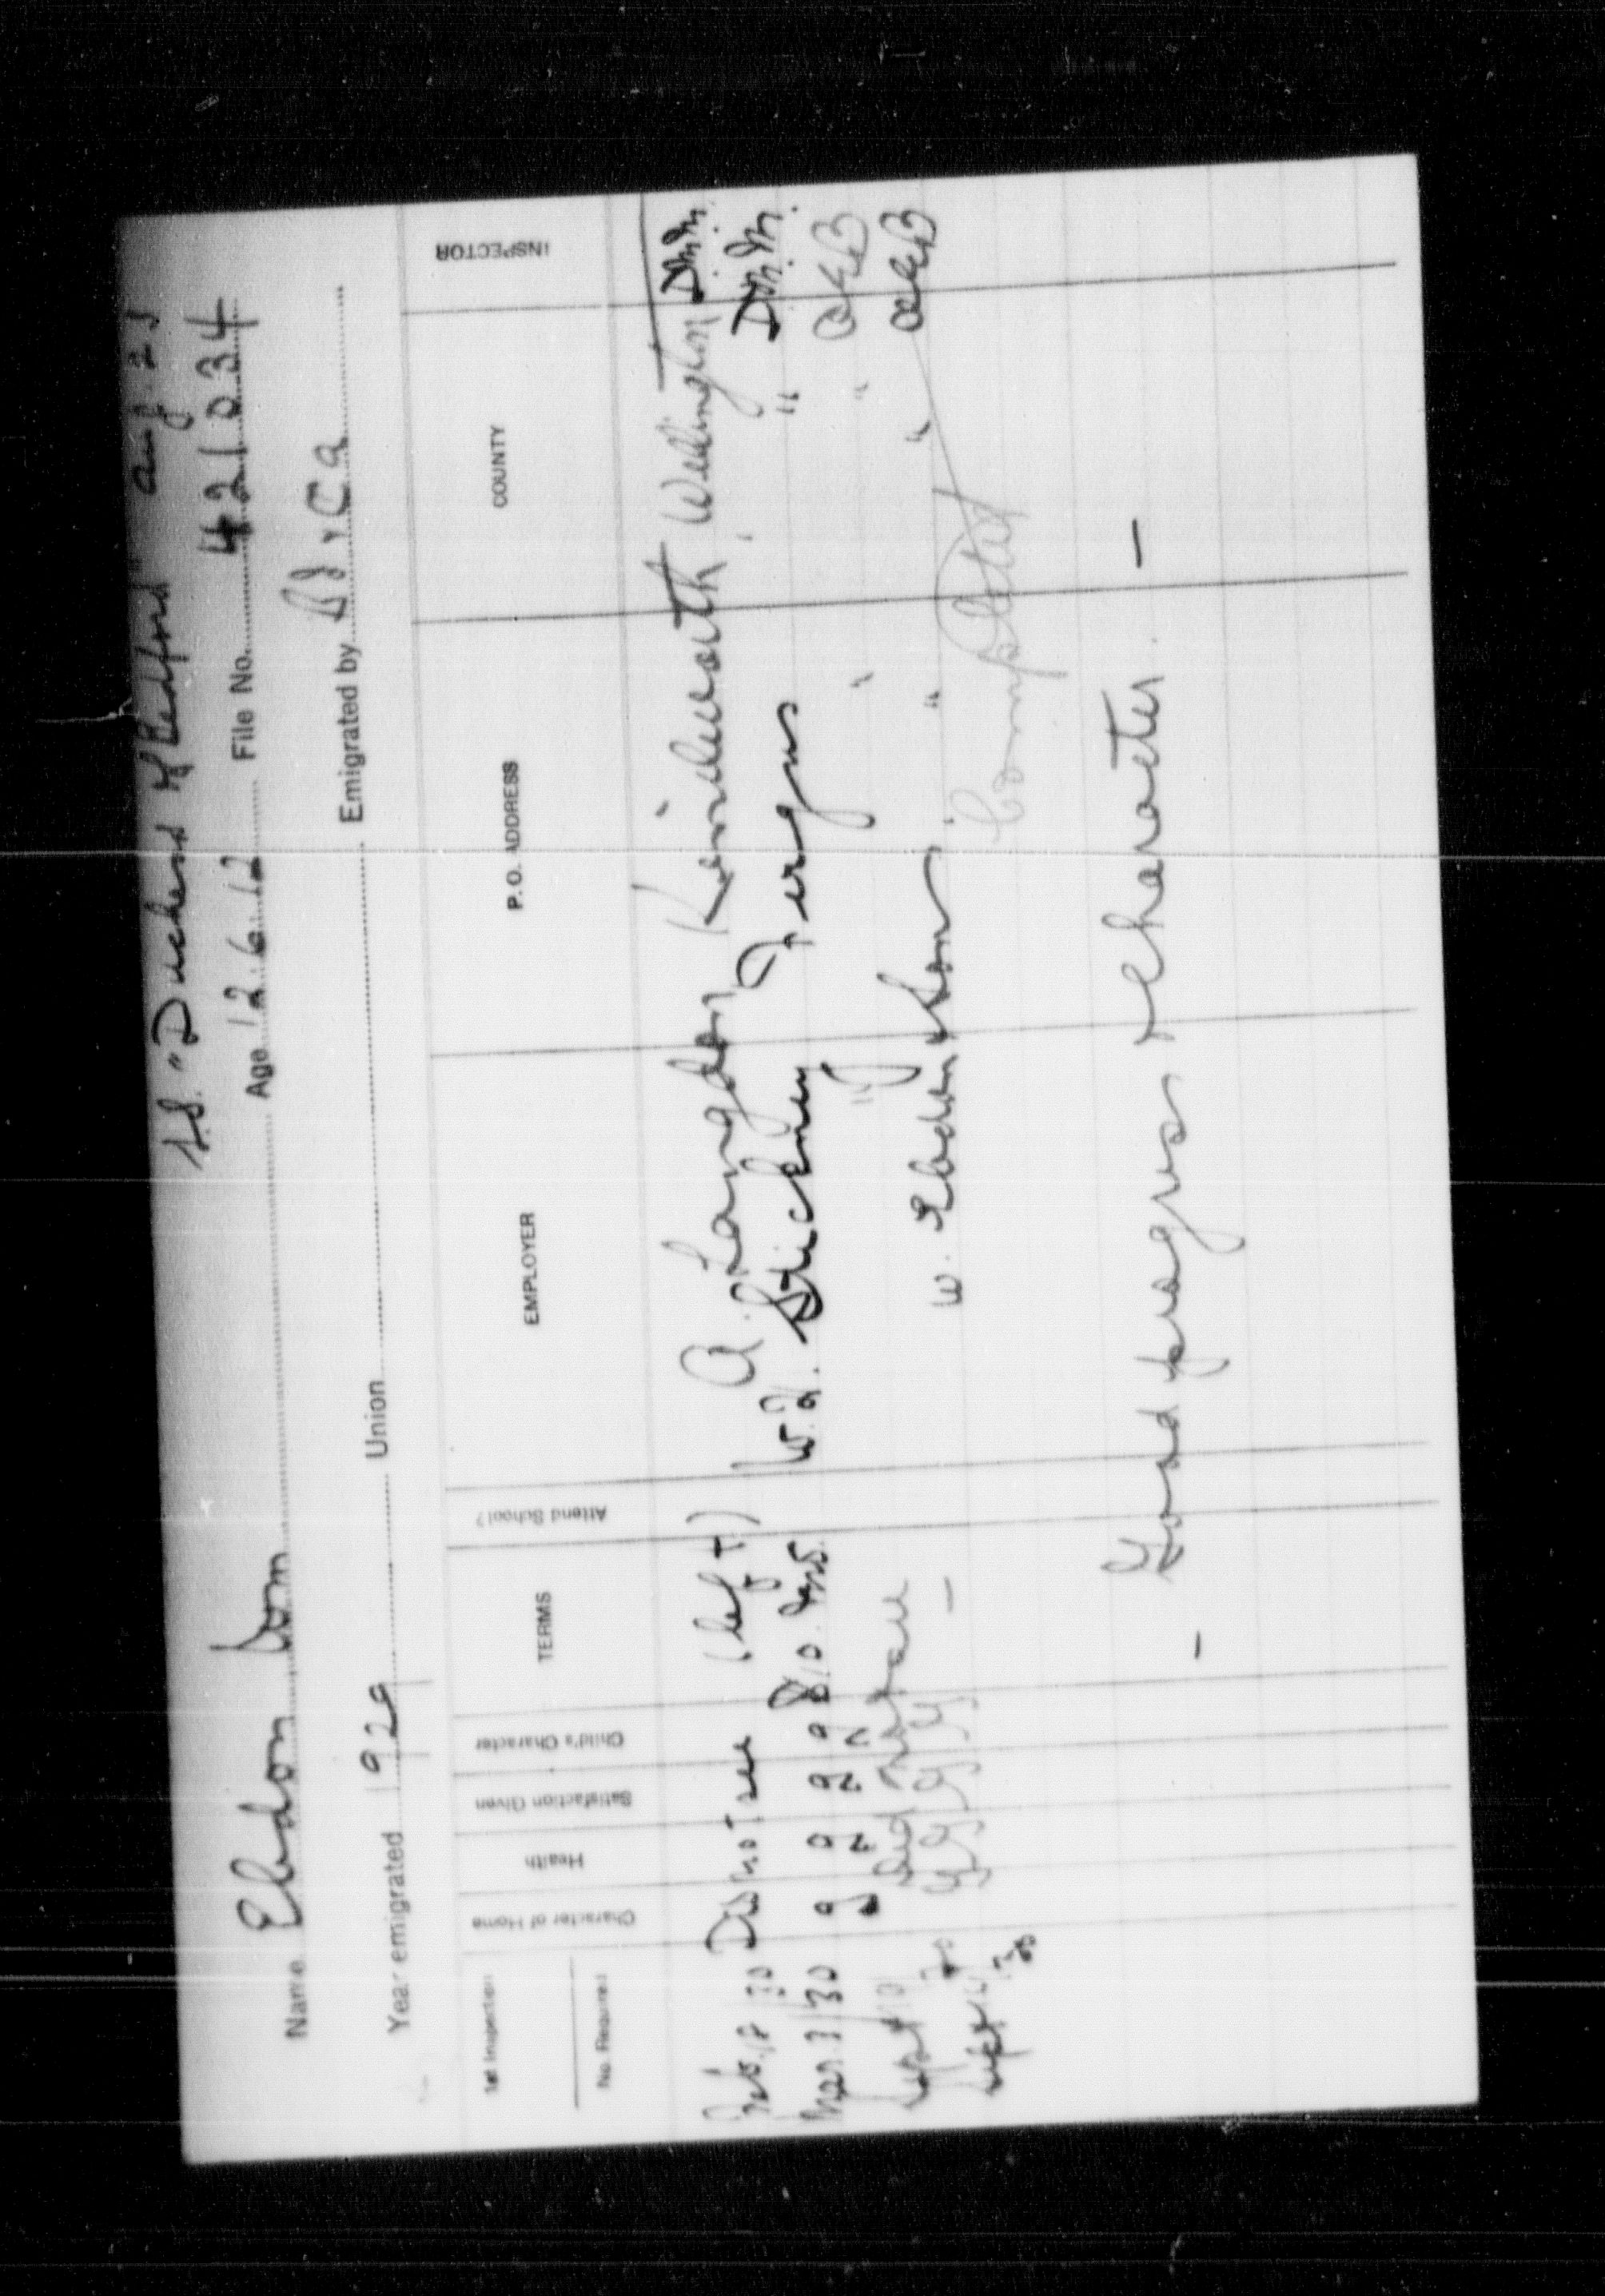 S.S. "Duchess of Bedford" Aug. 23
Name Ebdon Tom Age 12.6.12 File No. 421034
Year emigrated 1929 Union Emigrated by
1st Inspection
No. Required
Character of Home
Health
Satisfaction Given
Child's Character
TERMS
Attend School?
EMPLOYER
P.O. ADDRESS
COUNTY
INSPECTOR
Feb 18/30 Did not see (left) A. Langdon Kenilworth, Wellington D.M.M.
Mar 3/30 g g g g $10. mos. W.H. Stickney Fergus " D.M.M.
Sept Did not see " " "
Sept 30 G G G G - W. Ebdon & Son " "
Completed
- Good progress & Character -